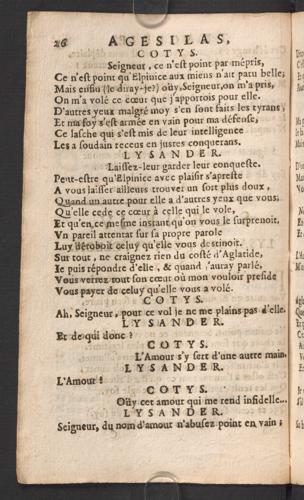 26 AGESILAS,
COTYS.
Seigneur, ce n'est point par mépris,
Ce n'est point qu'Elpinice aux miens n'ait paru belle;
Mais enfin (le diray-je?) oüy, Seigneur, on m'a pris,
On m'a volé ce cœur que j'apportois pour elle.
D'autres yeux malgré moy s'en sont faits les tyrans,
Et ma foy s'est armée en vain pour ma défense;
Ce lasche qui s'est mis de leur intelligence
Les a soudain receus en justes conquerans.
LYSANDER.
Laissez-leur garder leur conqueste.
Peut-estre qu'Elpinice avec plaisir s'apreste
A vous laisser ailleurs trouver un sort plus doux,
Quand un autre pour elle a d'autres yeux que vous;
Qu'elle cede ce cœur à celle qui le vole,
Et qu'en ce mesme instant qu'on vous le surprenoit,
Un pareil attentat sur sa propre parole
Luy déroboit celuy qu'elle vous destinoit.
Sur tout, ne craignez rien du costé d'Aglatide,
Je puis répondre d'elle, & quand j'auray parlé,
Vous verrez tout son cœur où mon vouloir preside
Vous payer de celuy qu'elle vous a volé.
COTYS.
Ah, Seigneur, pour ce vol je ne me plains pas d'elle.
LYSANDER.
Et de qui donc?
COTYS.
L'Amour s'y sert d'une autre main.
LYSANDER.
L'Amour!
COTYS.
Oüy cet amour qui me rend infidelle...
LYSANDER.
Seigneur, du nom d'amour n'abusez point en vain;